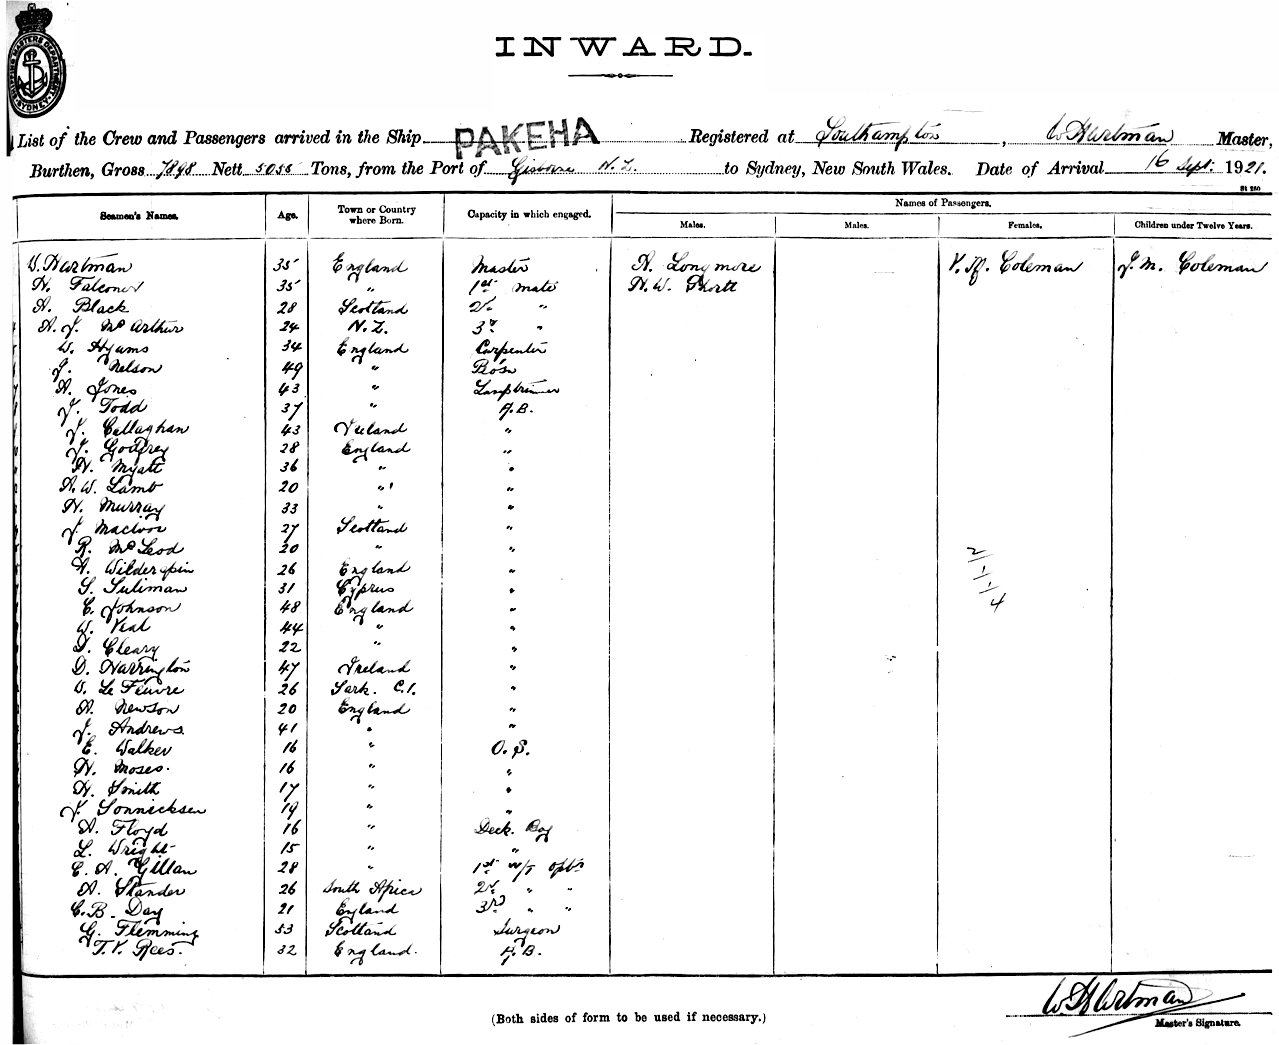 SHIPPING MASTERS DEPARTMENT SYDNEY
INWARD.
List of the Crew and Passengers arrived in the Ship PAKEHA Registered at Southampton, W Hartman Master,
Burthen, Gross 7898 Nett 5055 Tons, from the Port of Gisborne N.Z. to Sydney, New South Wales. Date of Arrival 16 Sept. 1921.
St 250
Seamen's Names. Age. Town or Country where Born. Capacity in which engaged. Names of Passengers.
Males. Males. Females. Children under Twelve Years.
W. Hartman 35 England Master A. Longmore V. H. Coleman J. M. Coleman
H. Falconer 35 " 1st Mate H. W. Shott
A. Black 28 Scotland 2d "
A. J. McArthur 24 N.Z. 3d "
W. Hyams 34 England Carpenter
J. Nelson 49 " Bosn
A. Jones 43 " Lamptrimmer
J. Todd 37 " A.B.
J. Callaghan 43 Ireland "
J. Godfrey 28 England "
H. Myatt 36 " "
A. W. Lamb 20 " "
H. Murray 33 " "
J. MacIvor 27 Scotland "
R. McLeod 20 " "
A. Wilderspin 26 England "
S. Suliman 31 Cyprus "
C. Johnson 48 England "
W. Veal 44 " "
Cleary 22 " "
D. Harrington 47 Ireland "
W. Le Feuvre 26 Sark. C.I. "
A. Newson 20 England "
J. Andrews 41 " "
E. Walker 16 " O.S.
H. Moses. 16 " "
H. Smith 17 " "
J. Sonnicksen 19 " "
A. Floyd 16 " Deck Boy
L. Wright 15 " "
C. A. Gillan 28 " 1st W/T Optr
A. Stander 26 South Africa 2d " "
C. B. Day 21 England 3rd " "
G. Flemming 53 Scotland Surgeon
T. V. Rees. 32 England. A.B.
2/1/1/4
W Hartman
(Both sides of form to be used if necessary.)
Master's Signature.